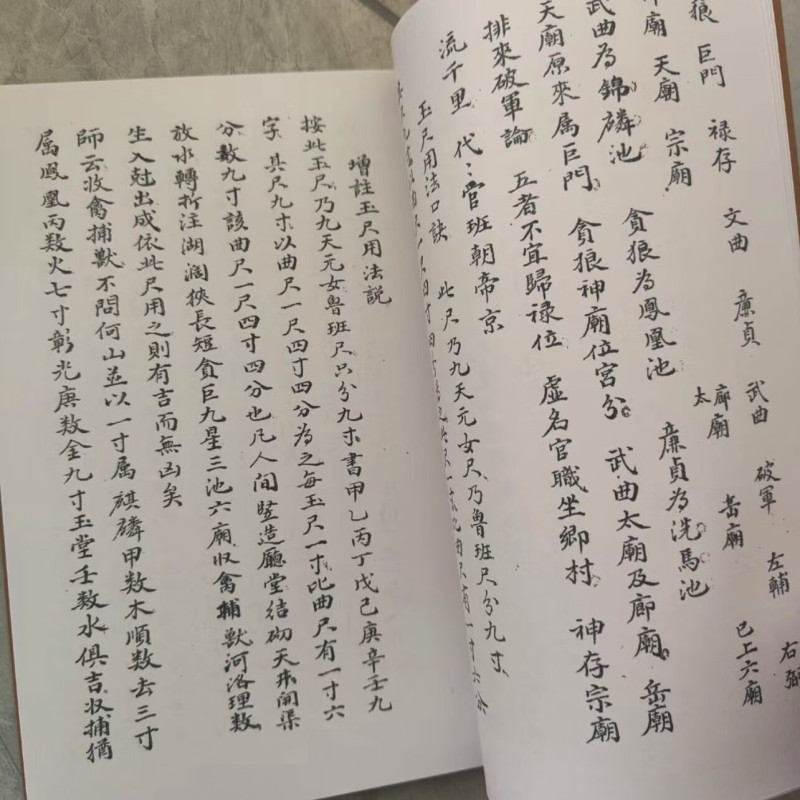 狼 巨門 祿存 文曲 廉貞 武曲 破軍 左輔 右弼
廟 天廟 宗廟 太廟 廊廟 岳廟 已上六廟
武曲為錦麟池 貪狼為鳳凰池 廉貞為洗馬池
天廟原來属巨門 貪狼神廟位宮分 武曲太廟及廊廟 岳廟
排來破軍論 五者不宜歸祿位 虛名官職坐鄉村 神存宗廟
流千里 代〻官班朝帝京
玉尺用法口訣 此尺乃九天元女尺乃魯班尺分九寸
增註玉尺用法説
按此玉尺乃九天元女魯班尺只分九寸書甲乙丙丁戊己庚辛壬九
字其尺九寸以曲尺一尺四寸四分為之每玉尺一寸比曲尺有一寸六
分數九寸該曲尺一尺四寸四分也凡人間竪造廳堂結砌天井開渠
放水轉折注湖濶狹長短貪巨九星三池六廟収禽輔獸河洛理数
生入尅出成依此尺用之則有吉而無凶矣
師云收禽捕獸不問何山並以一寸属麒麟甲数木順數去三寸
属鳳凰丙数火七寸彰光庚数金九寸玉堂壬数水俱吉収捕猶